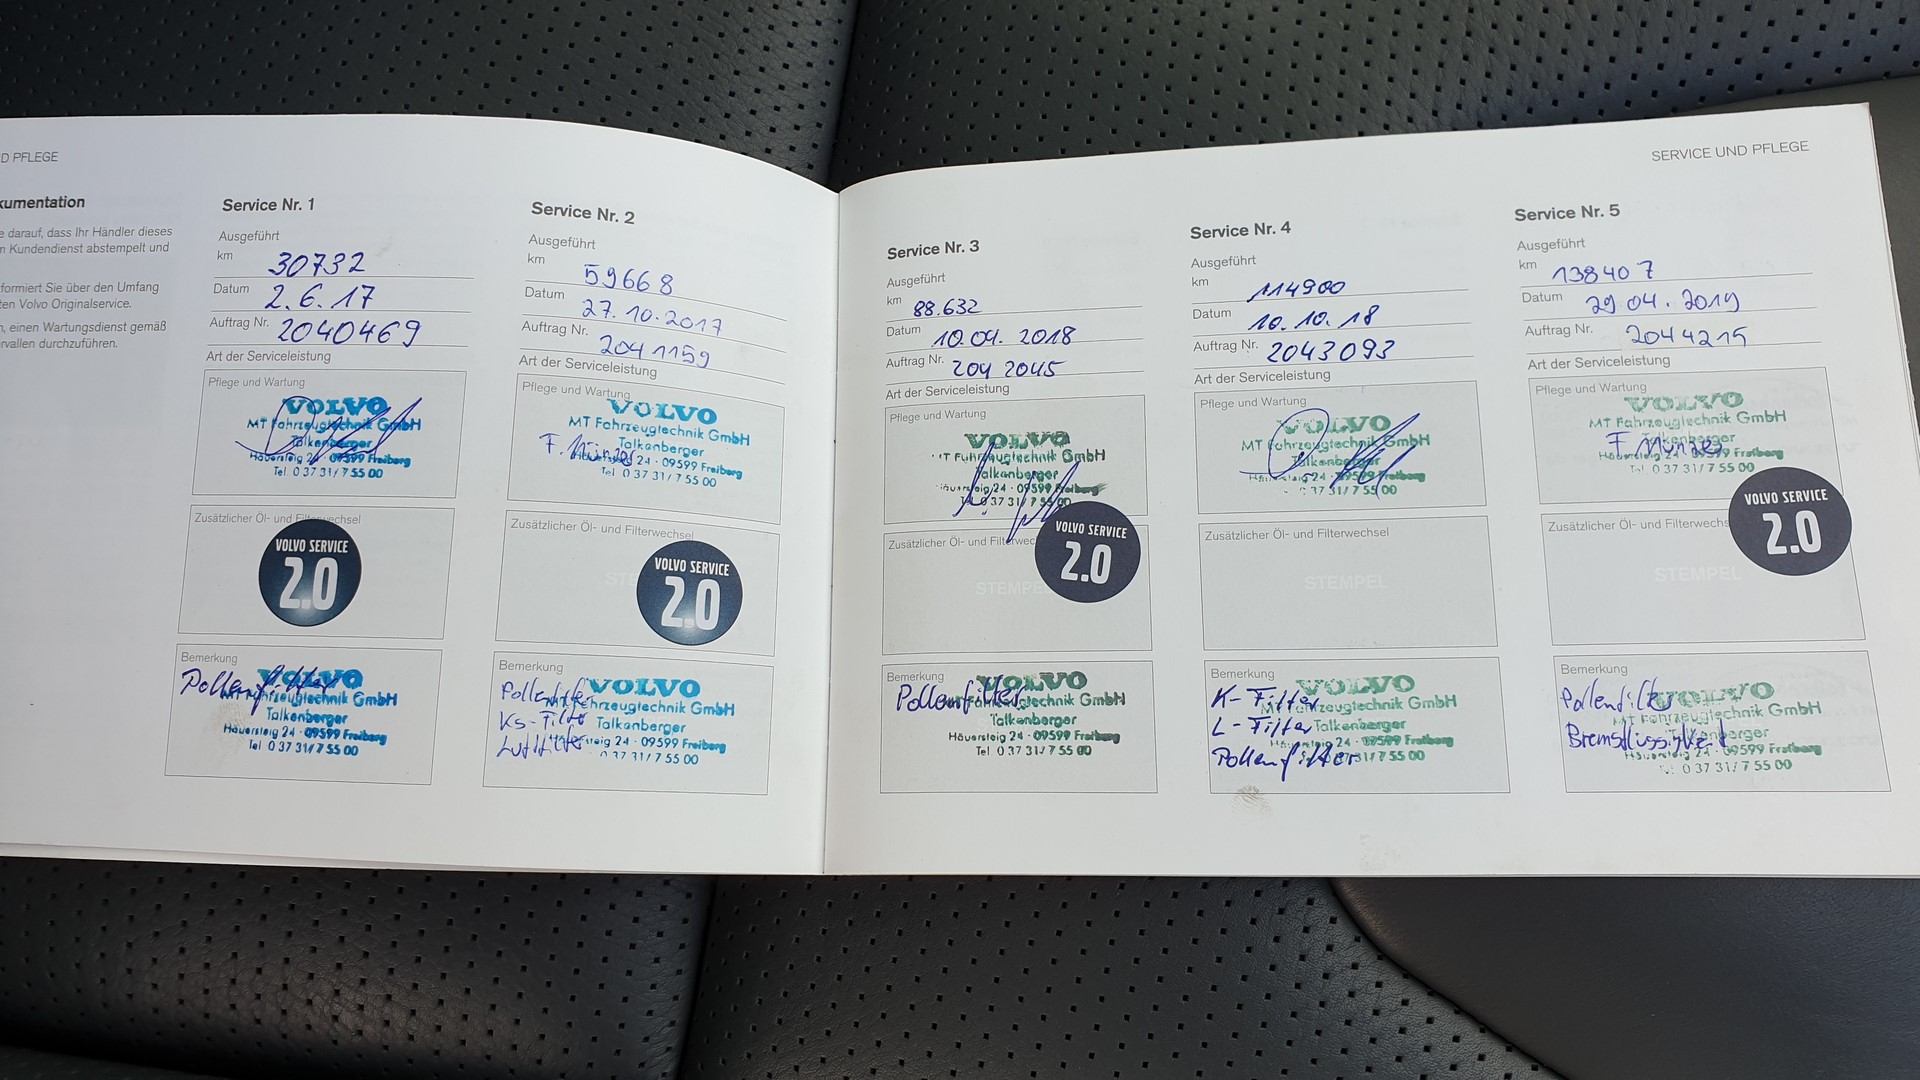 D PFLEGE
kumentation
e darauf, dass Ihr Händler dieses
n Kundendienst abstempelt und
formiert Sie über den Umfang
ten Volvo Originalservice.
n, einen Wartungsdienst gemäß
rvallen durchzuführen.
Service Nr. 1
Ausgeführt
km 30732
Datum 2.6.17
Auftrag Nr. 2040469
Art der Serviceleistung
Pflege und Wartung
VOLVO
MT Fahrzeugtechnik GmbH
Talkenberger
Häuersteig 24 · 09599 Freiberg
Tel. 0 37 31/ 7 55 00
Zusätzlicher Öl- und Filterwechsel
VOLVO SERVICE
2.0
Bemerkung
Pollenfilter
VOLVO
MT Fahrzeugtechnik GmbH
Talkenberger
Häuersteig 24 · 09599 Freiberg
Tel 0 37 31/ 7 55 00
Service Nr. 2
Ausgeführt
km 59668
Datum 27.10.2017
Auftrag Nr. 2041159
Art der Serviceleistung
Pflege und Wartung
VOLVO
MT Fahrzeugtechnik GmbH
Talkenberger
F. Münzer
Häuersteig 24 · 09599 Freiberg
Tel. 0 37 31/ 7 55 00
Zusätzlicher Öl- und Filterwechsel
VOLVO SERVICE
2.0
Bemerkung
Pollenfilter
Ks-Filter
Luftfilter
VOLVO
MT Fahrzeugtechnik GmbH
Talkenberger
24 · 09599 Freiberg
37 31/ 7 55 00
SERVICE UND PFLEGE
Service Nr. 3
Ausgeführt
km 88.632
Datum 10.04. 2018
Auftrag Nr. 204 2045
Art der Serviceleistung
Pflege und Wartung
VOLVO
MT Fahrzeugtechnik GmbH
Talkenberger
Häuersteig 24 · 09599 Freiberg
Tel 0 37 31/ 7 55 00
Zusätzlicher Öl- und Filterwec
STEMPEL
VOLVO SERVICE
2.0
Bemerkung
Pollenfilter
VOLVO
Fahrzeugtechnik GmbH
Talkenberger
Häuersteig 24 · 09599 Freiberg
Tel 0 37 31/ 7 55 00
Service Nr. 4
Ausgeführt
km 114900
Datum 10.10.18
Auftrag Nr. 2043093
Art der Serviceleistung
Pflege und Wartung
VOLVO
MT Fahrzeugtechnik GmbH
Talkenberger
Häuersteig 24 · 09599 Freiberg
37 31/ 7 55 00
Zusätzlicher Öl- und Filterwechsel
STEMPEL
Bemerkung
K-Filter
L-Filter
Pollenfilter
VOLVO
MT Fahrzeugtechnik GmbH
Talkenberger
24 · 09599 Freiberg
37 31/ 7 55 00
Service Nr. 5
Ausgeführt
km 138407
Datum 29 04. 2019
Auftrag Nr. 2044215
Art der Serviceleistung
Pflege und Wartung
VOLVO
MT Fahrzeugtechnik GmbH
Talkenberger
F. Münzer
Häuersteig 24 · 09599 Freiberg
Tel. 0 37 31/ 7 55 00
Zusätzlicher Öl- und Filterwechs
STEMPEL
VOLVO SERVICE
2.0
Bemerkung
Pollenfilter
Bremsflüssigkeit
VOLVO
MT Fahrzeugtechnik GmbH
Talkenberger
Häuersteig 24 · 09599 Freiberg
0 37 31/ 7 55 00